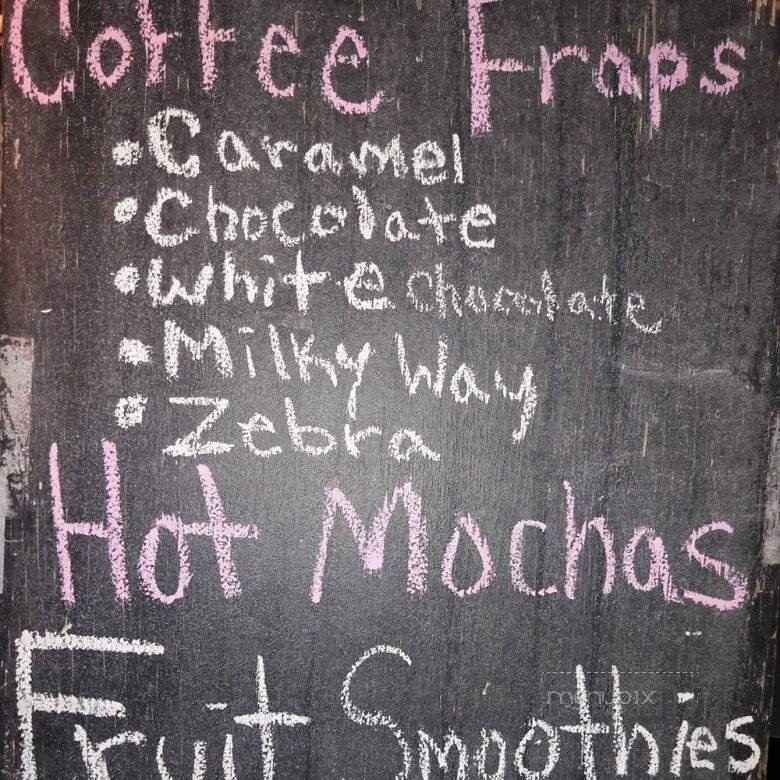 Coffee Fraps
• Caramel
• Chocolate
• White chocolate
• Milky Way
• Zebra
Hot Mochas
menupix
Fruit Smoothies